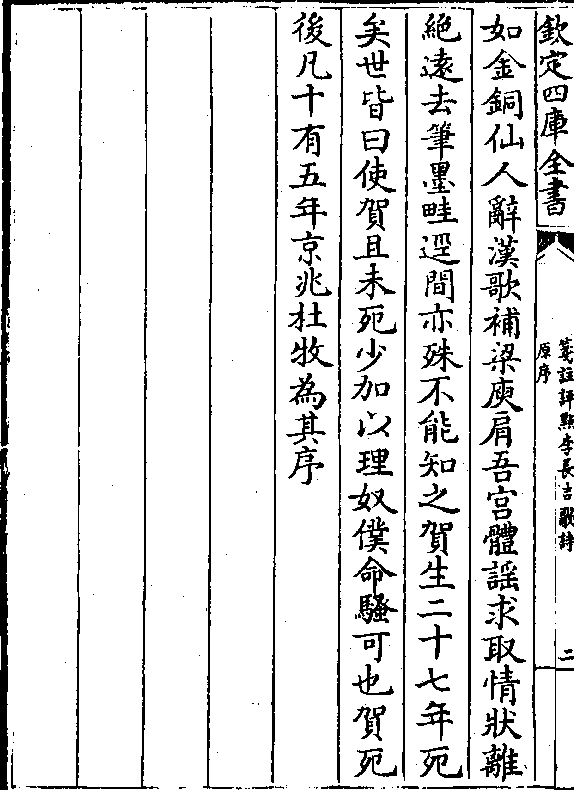 欽定四庫全書
箋註評點李長吉歌詩
原序
二
如金銅仙人辭漢歌補梁庾肩吾宫體謡求取情狀離
絶遠去筆墨畦逕間亦殊不能知之賀生二十七年死
矣世皆曰使賀且未死少加以理奴僕命騷可也賀死
後凡十有五年京兆杜牧為其序